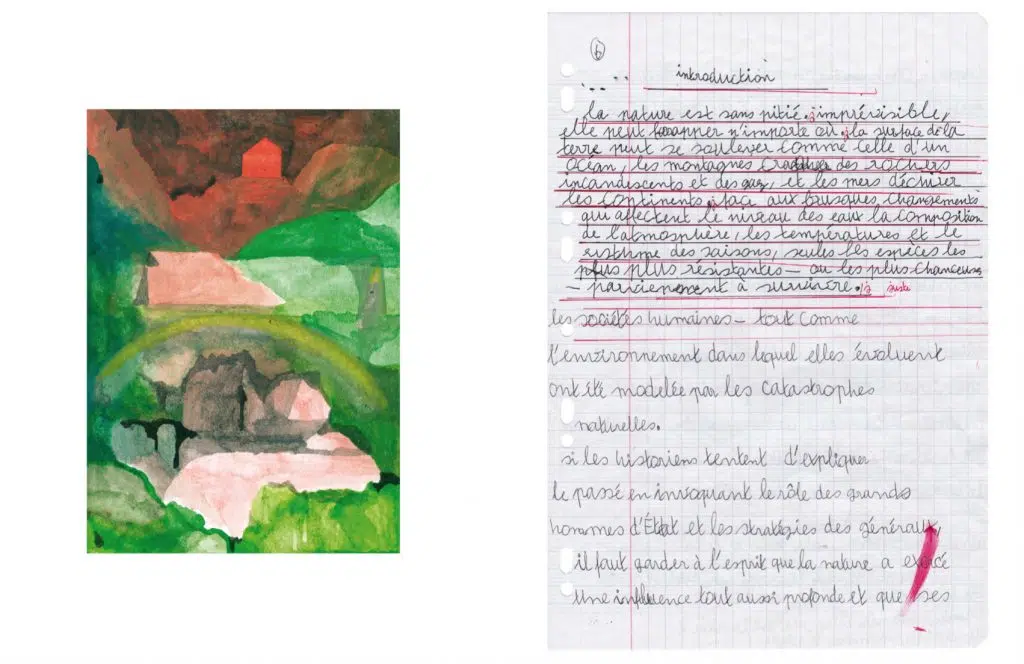 6
introduction
la nature est sans pitié. imprévisible,
elle peut frapper n'importe où. la surface de la
terre peut se soulever comme celle d'un
océan, les montagnes cracher des rochers
incandescents et des gaz, et les mers déchirer
les continents. face aux brusques changements
qui affectent le niveau des eaux la composition
de l'atmosphère, les températures et le
des saisons, seules les espèces les
plus plus résistantes – ou les plus chanceuses
– parviennent à survivre.
les sociétés humaines – tout comme
l'environnement dans lequel elles évoluent
ont été modelée par les catastrophes
naturelles.
si les historiens tentent d'expliquer
le passé en invoquant le rôle des grands
hommes d'État et les stratégies des généraux,
il faut garder à l'esprit que la nature a exercé
une influence tout aussi profonde et que ses